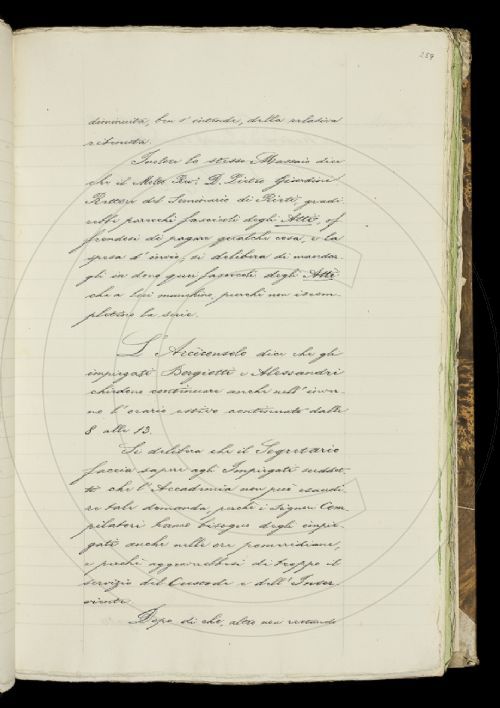 259
diminuita, ben s'intende, della relativa
ritenuta.
Inoltre lo stesso Massaio dice
che il Molto Rev. D. Pietro
Rettore del Seminario di Rieti, gradi-
rebbe parecchi fascicoli degli Atti, of-
frendosi di pagare qualche cosa, e la
spesa d'invio; si delibera di mandar-
gli in dono quei fascicoli degli Atti
che a lui manchino, purchè non iscom-
pletino la serie.
L'Arciconsolo dice che gli
impiegati Borgiotti e Alessandri
chiedono continuare anche nell'inver-
no l'orario estivo continuato dalle
8 alle 13.
Si delibera che il Segretario
faccia sapere agli Impiegati suddet-
ti che l'Accademia non può esaudi-
re tale domanda, perchè i Signori Com-
pilatori hanno bisogno degli impie-
gati anche nelle ore pomeridiane,
e perchè aggraverebbesi di troppo il
servizio del Custode e dell'Inser-
viente.
Dopo di che, altro non restando